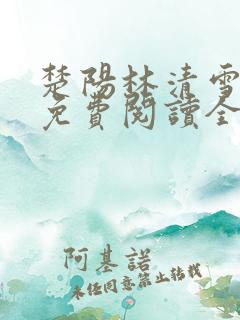 楚陽林清雪
免費閱讀全
阿基諾
未经同意禁止转载